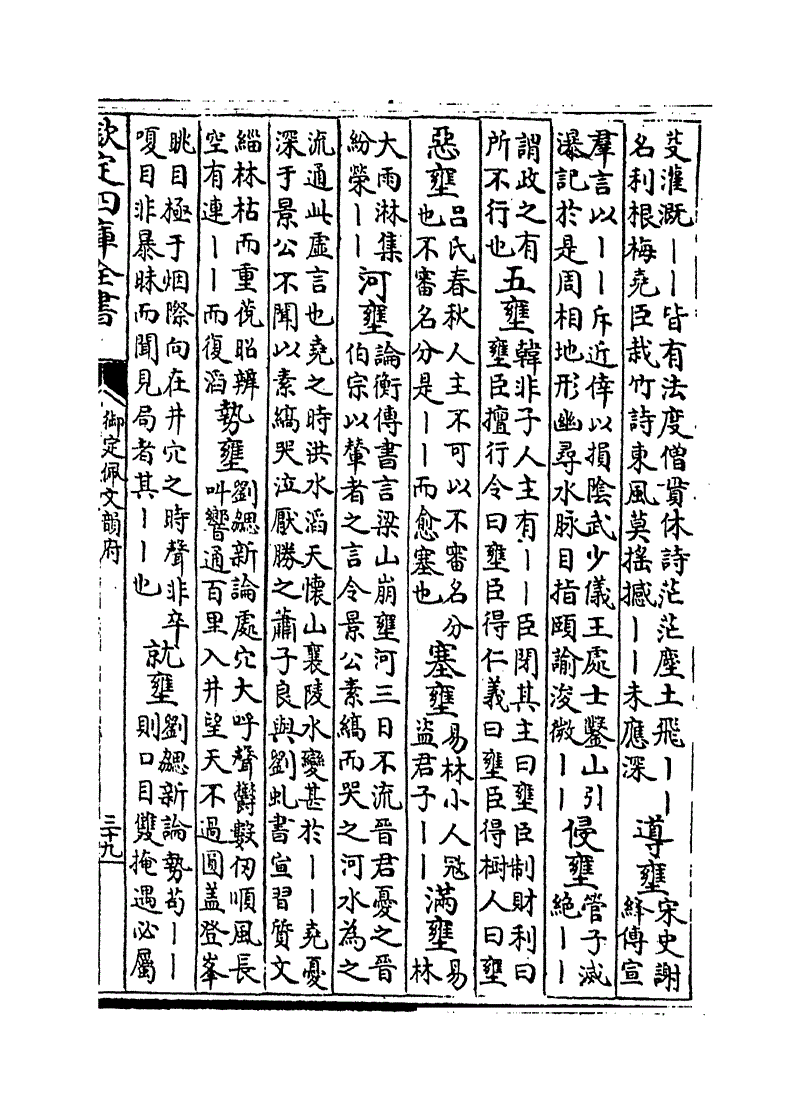 芟灌溉丨丨皆有法度僧貫休詩茫茫塵土飛丨丨
名利根梅堯臣栽竹詩東風莫搖撼丨丨未應深
導壅
宋史謝
絳傳宣
羣言以丨丨斥近倖以損陰武少儀王處士鑿山引
瀑記於是周相地形幽尋水脉目指頤諭浚微丨丨
侵壅
管子滅
絕丨丨
謂政之有
所不行也
五壅
韓非子人主有丨丨臣閉其主曰壅臣制財利曰
壅臣擅行令曰壅臣得仁義曰壅臣得樹人曰壅
惡壅
呂氏春秋人主不可以不審名分
也不審名分是丨丨而愈塞也
塞壅
易林小人冦
盜君子丨丨
滿壅
易
林
大雨淋集
紛榮丨丨
河壅
論衡傳書言梁山崩壅河三日不流晉君憂之晉
伯宗以輦者之言令景公素縞而哭之河水為之
流通此虛言也堯之時洪水滔天懷山襄陵水變甚於丨丨堯憂
深于景公不聞以素縞哭泣厭勝之蕭子良與劉虬書宣習質文
緇林枯而重蒨昭辨
空有連丨丨而復滔
勢壅
劉勰新論處穴大呼聲鬱數仞順風長
叫響通百里入井望天不過圓蓋登峯
眺目極于烟際向在井穴之時聲非卒
嗄目非暴昧而聞見局者其丨丨也
就壅
劉勰新論勢苟丨丨
則口目雙掩遇必屬
欽定四庫全書
御定佩文韻府
三十九